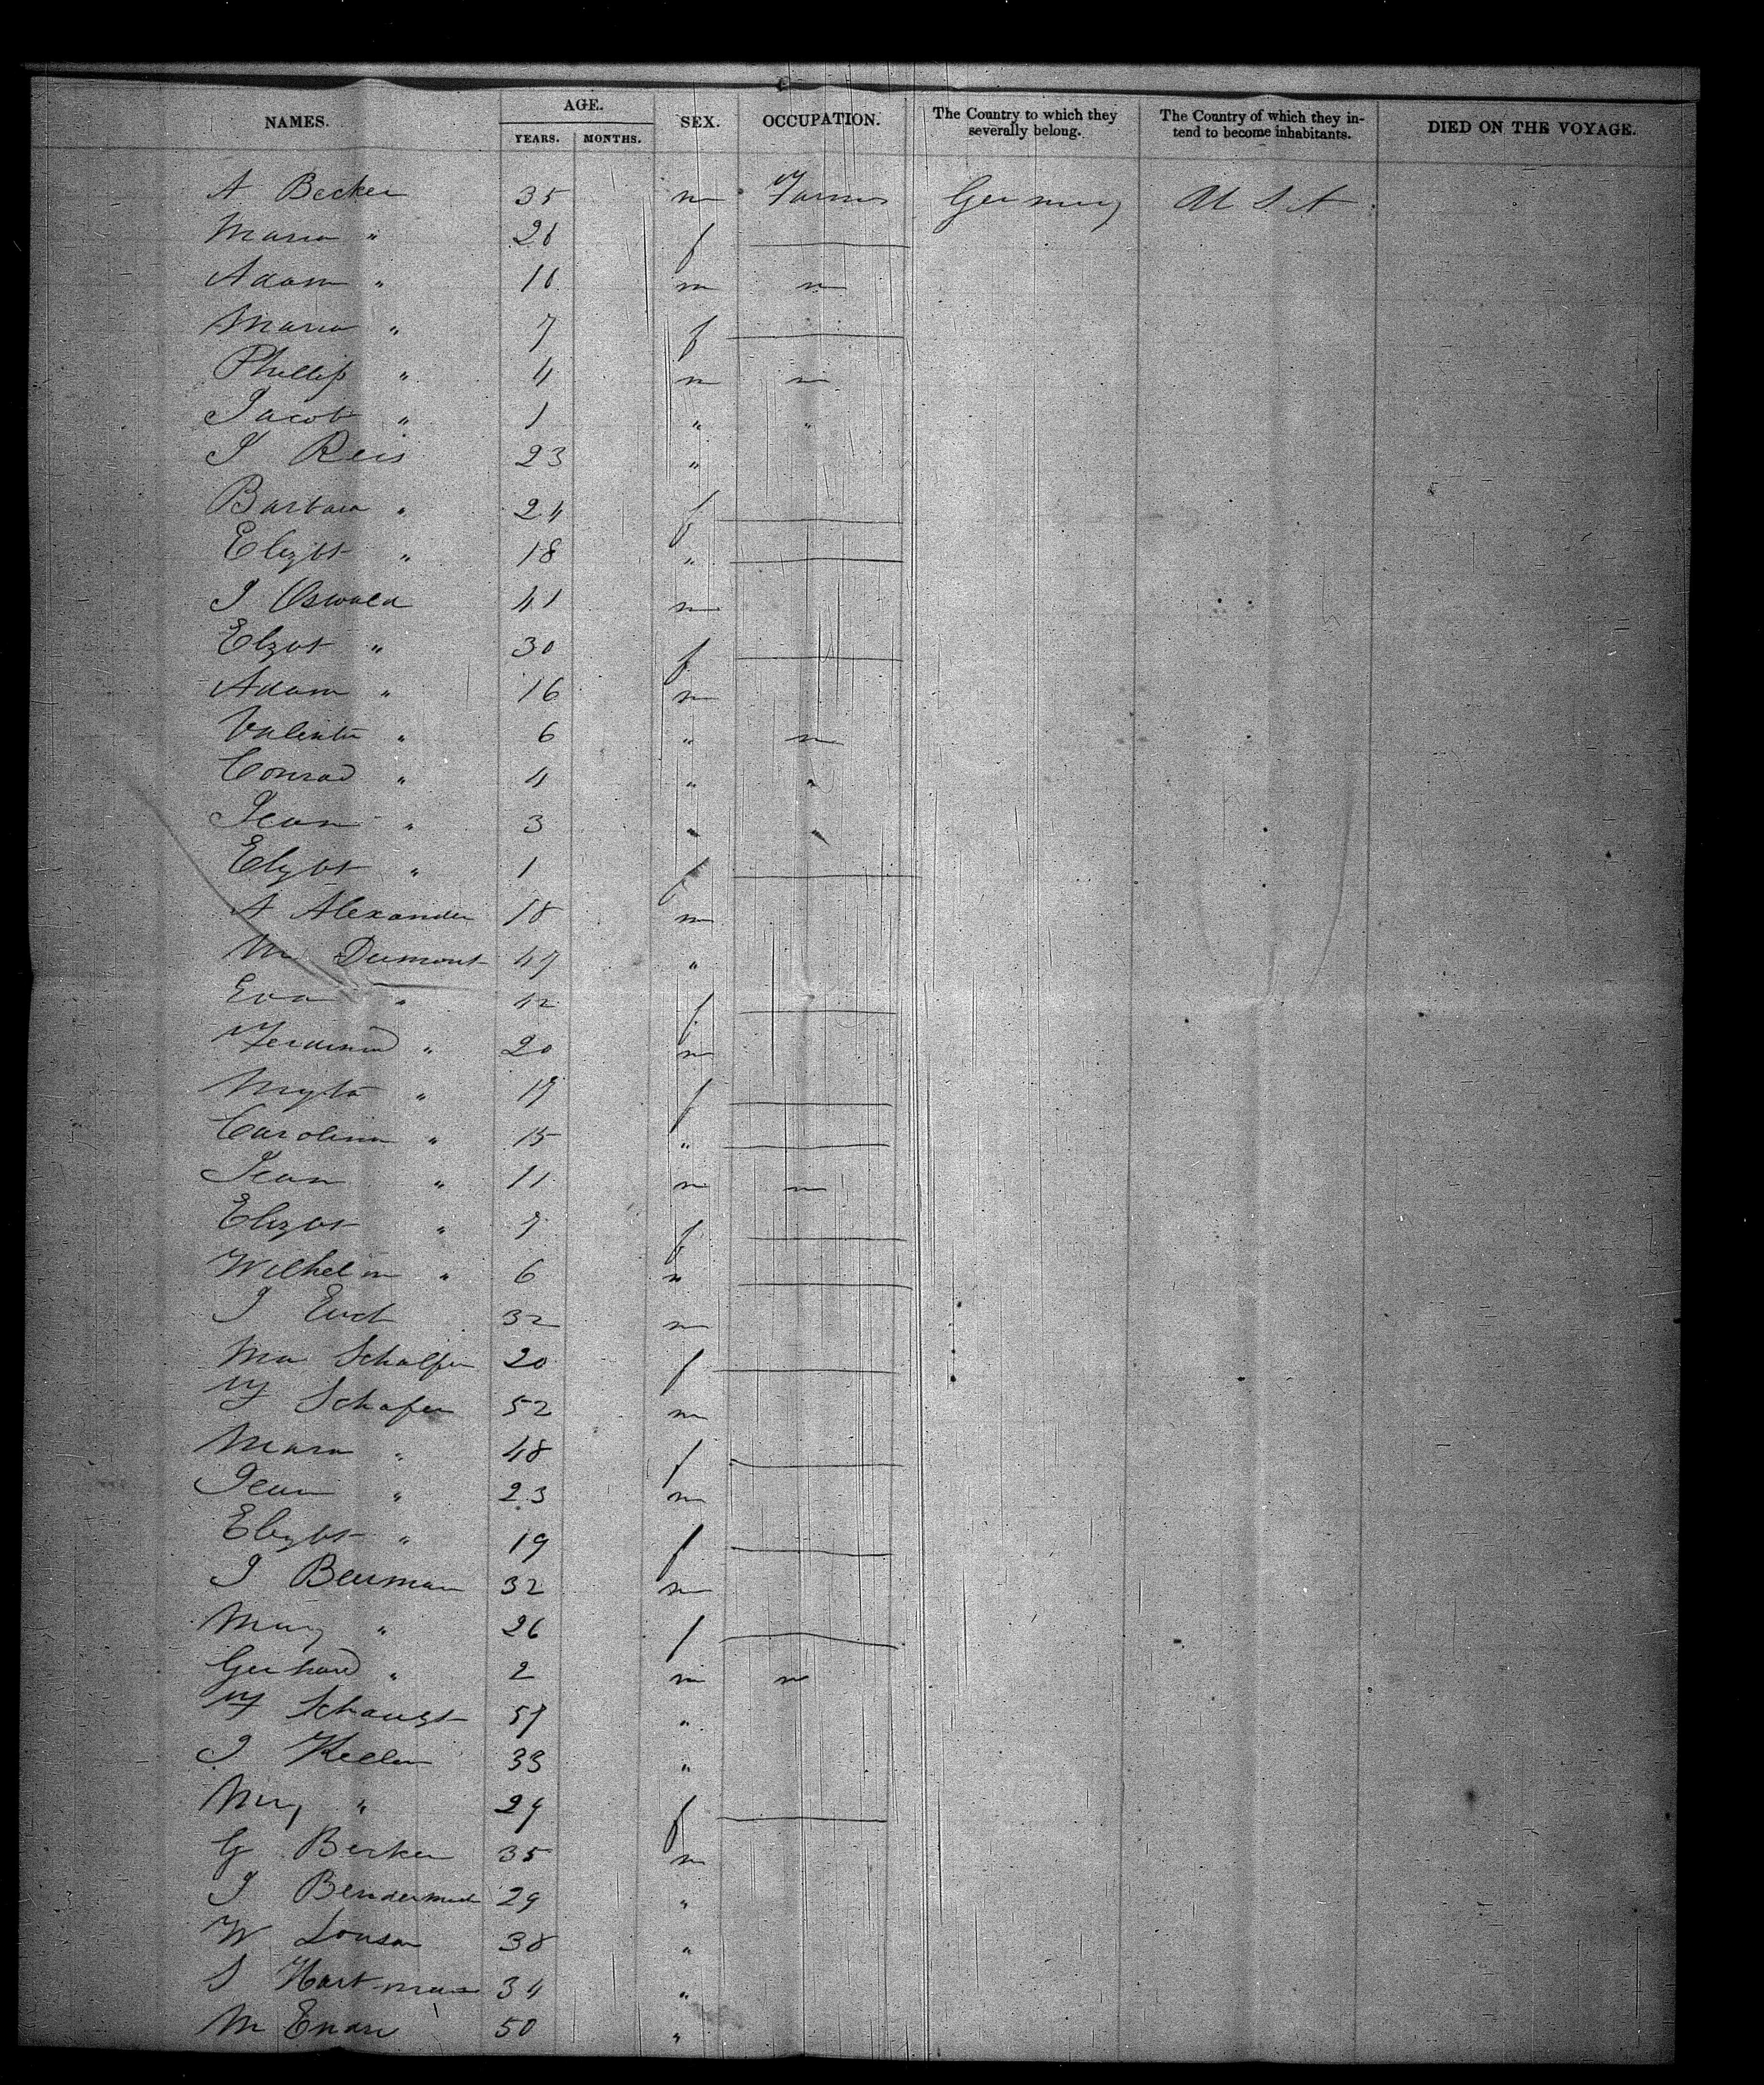 NAMES. AGE. YEARS. MONTHS. SEX. OCCUPATION. The Country to which they severally belong. The Country of which they intend to become inhabitants. DIED ON THE VOYAGE.
A Becker 35 m Farmer Germany U S A
Maria " 26 f
Adam " 10 m "
Maria " 7 f
Phillip " 4 m "
Jacob " 1 " "
J Reis 23 "
Barbara " 24 f
Elizbt " 18 "
J Oswald 41 m
Elzbt " 30 f
Adam " 16 m
Valentin " 6 " "
Conrad " 4 " "
Jean " 3 " "
Elizbt " 1 f
A Alexander 18 m
M Dumont 47 "
Eva " 42 f
Ferdinand " 20 m
" 17 f
Carolina " 15 "
Jean " 11 m "
Elizbt " 7 f
Wilhelm " 6 "
J 32 m
Ma 20 f
F Schafer 52 m
Maria " 48 f
Jean " 23 m
Elizbt " 19 f
J Beuman 32 m
Mary " 26 f
Gerhard " 2 m "
F 57 "
J Keller 33 "
Mary " 29 f
G Becker 35 m
J 29 "
W 38 "
S Hartman 34 "
M 50 "